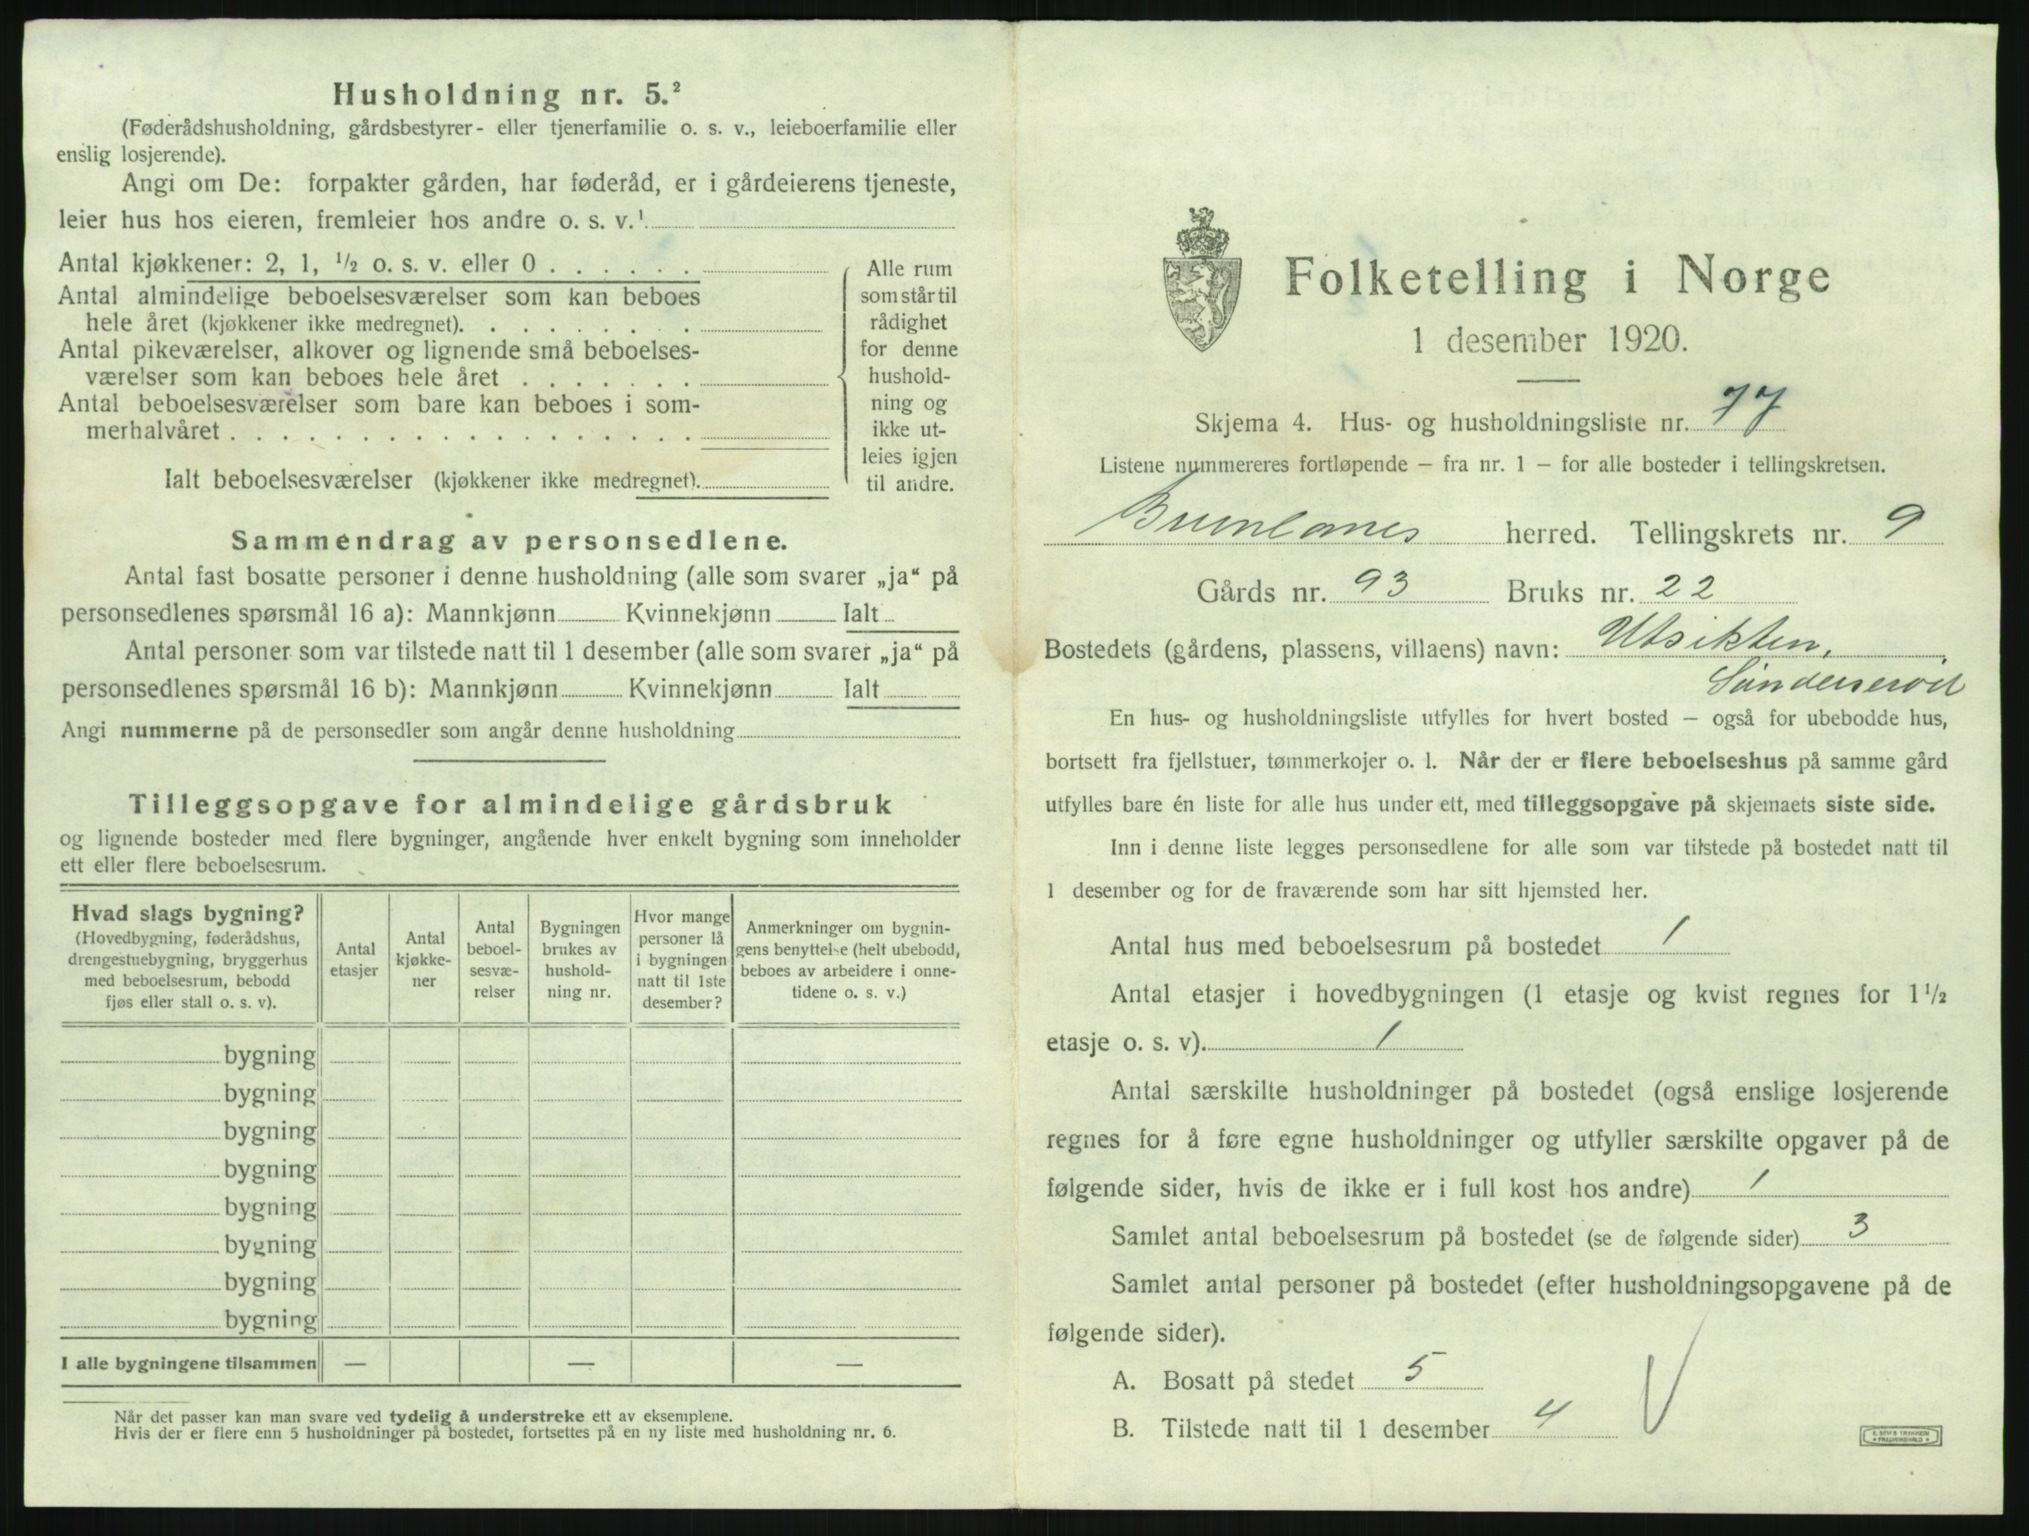 Husholdning nr. 5.²
(Føderådshusholdning, gårdsbestyrer- eller tjenerfamilie o. s. v., leieboerfamilie eller
enslig losjerende).
Angi om De: forpakter gården, har føderåd, er i gårdeierens tjeneste,
leier hus hos eieren, fremleier hos andre o. s. v.¹
Antal kjøkkener: 2, 1, ½ o. s. v. eller 0 . . . . . .
Antal almindelige beboelsesværelser som kan beboes
hele året (kjøkkener ikke medregnet). . . . . . . . .
Antal pikeværelser, alkover og lignende små beboelses-
værelser som kan beboes hele året . . . . . . .
Antal beboelsesværelser som bare kan beboes i som-
merhalvåret . . . . . . . . . . . . . . . . . .
Ialt beboelsesværelser (kjøkkener ikke medregnet).
Alle rum
som står til
rådighet
for denne
hushold-
ning og
ikke ut-
leies igjen
til andre.
Sammendrag av personsedlene.
Antal fast bosatte personer i denne husholdning (alle som svarer „ja“ på
personsedlenes spørsmål 16 a): Mannkjønn Kvinnekjønn Ialt
Antal personer som var tilstede natt til 1 desember (alle som svarer „ja“ på
personsedlenes spørsmål 16 b): Mannkjønn Kvinnekjønn Ialt
Angi nummerne på de personsedler som angår denne husholdning
Tilleggsopgave for almindelige gårdsbruk
og lignende bosteder med flere bygninger, angående hver enkelt bygning som inneholder
ett eller flere beboelsesrum.
Hvad slags bygning?
(Hovedbygning, føderådshus,
drengestuebygning, bryggerhus
med beboelsesrum, bebodd
fjøs eller stall o. s. v).
Antal
etasjer
Antal
kjøkke-
ner
Antal
beboel-
sesvæ-
relser
Bygningen
brukes av
hushold-
ning nr.
Hvor mange
personer lå
i bygningen
natt til 1ste
desember?
Anmerkninger om bygnin-
gens benyttelse (helt ubebodd,
beboes av arbeidere i onne-
tidene o. s. v.)
bygning
bygning
bygning
bygning
bygning
bygning
bygning
bygning
I alle bygningene tilsammen — — —
Når det passer kan man svare ved tydelig å understreke ett av eksemplene.
Hvis der er flere enn 5 husholdninger på bostedet, fortsettes på en ny liste med husholdning nr. 6.
Folketelling i Norge
1 desember 1920.
Skjema 4. Hus- og husholdningsliste nr. 77
Listene nummereres fortløpende — fra nr. 1 — for alle bosteder i tellingskretsen.
Brunlanes herred. Tellingskrets nr. 9
Gårds nr. 93 Bruks nr. 22
Bostedets (gårdens, plassens, villaens) navn: Utsikten,
Sønderserød
En hus- og husholdningsliste utfylles for hvert bosted — også for ubebodde hus,
bortsett fra fjellstuer, tømmerkojer o. l. Når der er flere beboelseshus på samme gård
utfylles bare én liste for alle hus under ett, med tilleggsopgave på skjemaets siste side.
Inn i denne liste legges personsedlene for alle som var tilstede på bostedet natt til
1 desember og for de fraværende som har sitt hjemsted her.
Antal hus med beboelsesrum på bostedet 1
Antal etasjer i hovedbygningen (1 etasje og kvist regnes for 1½
etasje o. s. v). 1
Antal særskilte husholdninger på bostedet (også enslige losjerende
regnes for å føre egne husholdninger og utfyller særskilte opgaver på de
følgende sider, hvis de ikke er i full kost hos andre) 1
Samlet antal beboelsesrum på bostedet (se de følgende sider) 3
Samlet antal personer på bostedet (efter husholdningsopgavene på de
følgende sider).
A. Bosatt på stedet 5
B. Tilstede natt til 1 desember 4